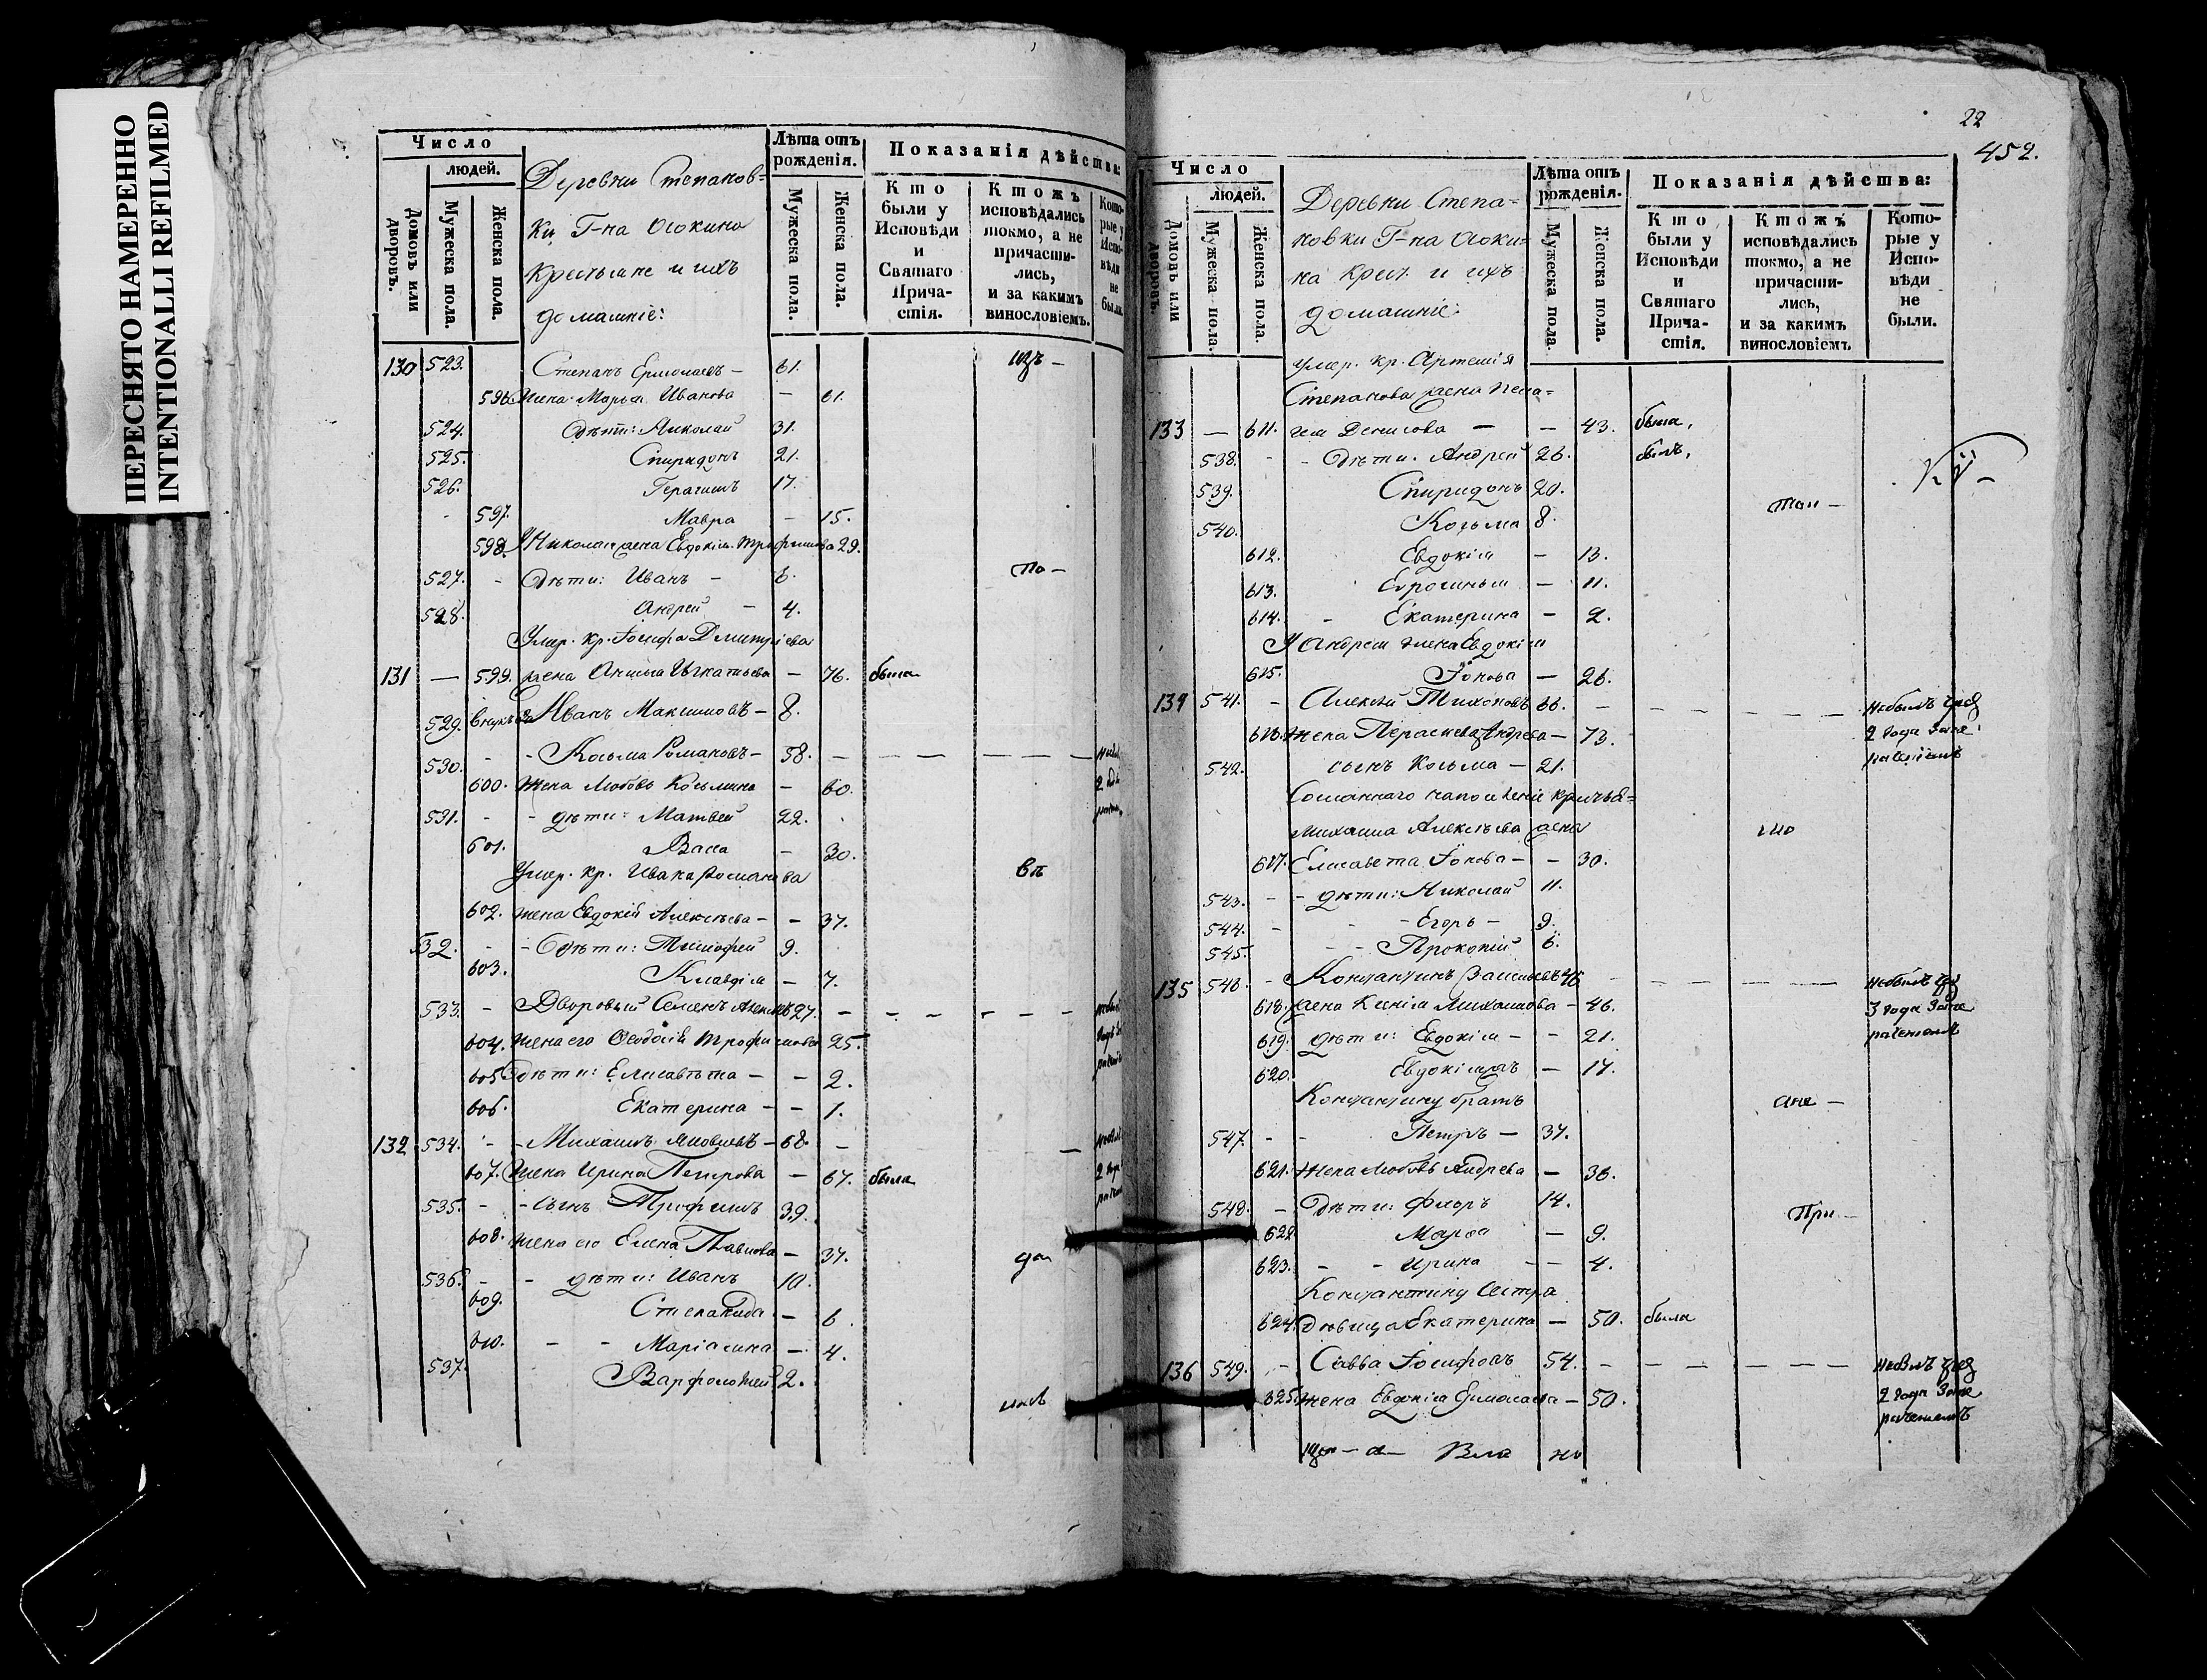 ПЕРЕСНЯТО НАМЕРЕННО
INTENTIONALLI REFILMED
Число
людей.
Домовъ или дворовъ.
Мужеска пола.
Женска пола.
Деревни Степанов=
ки Г-на Осокина
Крестьяне и ихъ
домашніе:
Лѣта отъ рожденія.
Мужеска пола.
Женска пола.
Показанія дѣйства:
Кто были у Исповѣди и Святаго Прича-стія.
Ктожъ исповѣдались токмо, а не причасти-лись, и за какимъ винословіемъ.
Кото-рые у Испо-вѣди не были.
130 523. Степанъ Ермолаевъ — 61.
596. Жена Марѳа Иванова — 61.
524. Дѣти: Николай 31.
525. Спиридонъ 21.
526. Герасимъ 17.
597. Мавра — 15.
598. У Николая жена Евдокія Трофимова 29.
527. - Дѣти: Иванъ - 6. по —
528. Андрей — 4.
Умер. кр. Іосифа Дмитріева
131 — 599. жена Анисья Игнатьева — 76. была
529. Внукъ Иванъ Максимовъ — 8.
530. - - Косьма Романовъ — 58. — — — — —
600. Жена Любовь Косьмина — 60.
531. - - дѣти: Матвей 22.
601. Васса — 30.
Умер. кр. Ивана Романова вѣ
602. жена Евдокія Алексѣева — — 37.
532. - - Дѣти: Тимофей 9.
603. Клавдія — 7.
533. - Дворовый Семенъ 27. — — — — — —
604. Жена его Ѳеодосія Трофимова 25.
605. Дѣти: Елисавета — — 2.
606. Екатерина — — 1.
132 534. - - Михаилъ Яковлевъ — 68. —
607. Жена Ирина Петрова — 67. была
535. - - Сынъ Трофимъ 39.
608. Жена его Елена Павлова — 37.
536. - - дѣти: Иванъ 10.
609. Степанида — 6.
610. - - Маріамна — 4.
537. Варфоломей 2.
22
452.
Число
людей.
Домовъ или дворовъ.
Мужеска пола.
Женска пола.
Деревни Степа=
новки Г-на Осоки=
на Крест. и ихъ
домашніе:
Лѣта отъ рожденія.
Мужеска пола.
Женска пола.
Показанія дѣйства:
Кто были у Исповѣди и Святаго Прича-стія.
Ктожъ исповѣдались токмо, а не причасти-лись, и за какимъ винословіемъ.
Кото-рые у Испо-вѣди не были.
Умер. кр. Артемія
Степанова жена Пела=
133 — 611. гея Денисова — — 43. была,
538. - - Дѣти: Андрей 26. былъ,
539. Спиридонъ 20.
540. Косьма 8.
612. Евдокія — 13.
613. Евросинья — 11.
614. - Екатерина — 2.
У Андрея жена Евдокія
615. Іонова — 26.
134 541. - Алексѣй Тихоновъ 66. - — — — — небылъ чрез
616. Жена Параскева Андреева — 73. 2 года за не
542. сынъ Косьма — 21. раченіемъ
Михаила Алексѣева жена
617. Елисавета Іонова — — 30.
543. - - дѣти: Николай 11.
544. - - - Егоръ — 9.
545. - - Прокопій 6.
135 546. - Константинъ Васильевъ 46. — — — — — небылъ чрез
618. жена Ксенія Михайлова — 46. 3 года за не
619. дѣти: Евдокія — — 21. раченіемъ
620. Евдокія — 17.
Константину братъ
547. - - Петръ — 37.
621. Жена Любовь Андреева — 36.
548. - Дѣти: Флоръ 14. При —
622. Марѳа — 9.
623. - - Ирина — — 4.
Константину Сестра
624. Дѣвица Екатерина — 50. была
136 549. - Савва Іосифовъ 54. — — — — — небылъ чрез
325. Жена Евдокія Ермолаева — 50. 2 года за не
раченіемъ